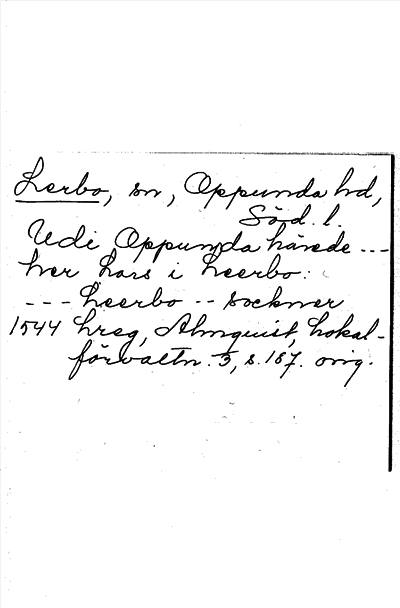 Lerbo, sn, Oppunda hd,
Söd. l.
Udi Oppunda härede ---
her Lars i Leerbo:
--- Leerbo -- sockner
1544 hreg, Almquist, Lokal-
förvaltn. 3, s. 187. orig.